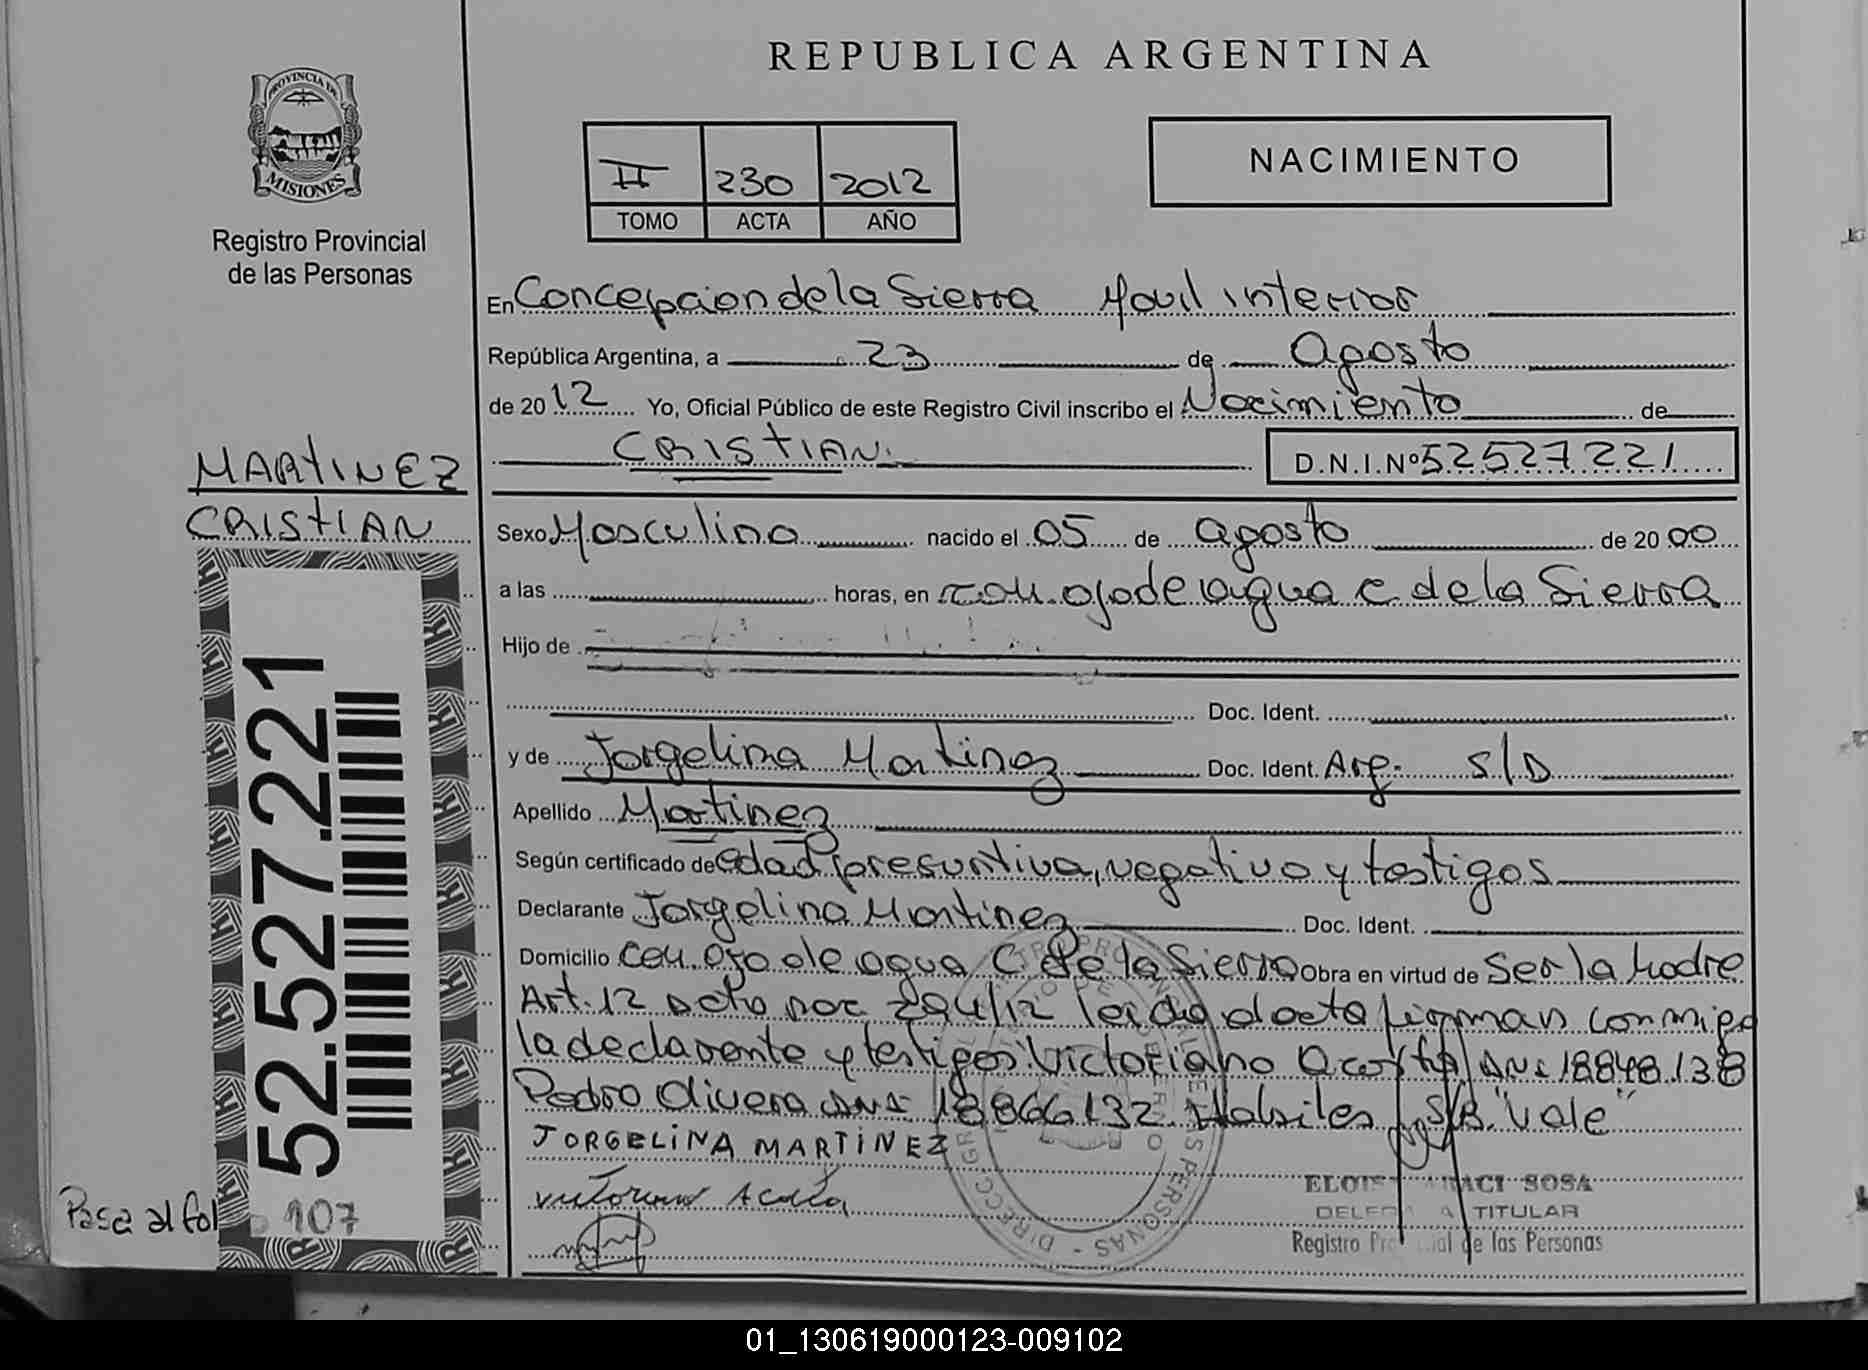 REPUBLICA ARGENTINA
PROVINCIA DE
MISIONES
Registro Provincial
de las Personas
II 230 2012
TOMO ACTA AÑO
NACIMIENTO
En Concepcion de la Sierra Movil interior
República Argentina, a 23 de Agosto
de 2012 Yo, Oficial Público de este Registro Civil inscribo el Nacimiento de
CRISTIAN D.N.I.Nº 52527221
MARTINEZ
CRISTIAN
Sexo Masculino nacido el 05 de agosto de 2000
a las horas, en com. ojo de agua C de la Sierra
Hijo de
Doc. Ident.
y de Jorgelina Martinez Doc. Ident. Arg. S/D
Apellido Martinez
Según certificado de edad presuntiva, negativo y testigos
Declarante Jorgelina Martinez Doc. Ident.
Domicilio com. ojo de agua C de la Sierra Obra en virtud de Ser la Madre
Art. 12 294/12 leida el acta firman conmigo
la declarante y testigos Victoriano Acosta DNI 18848.138
Pedro Olivera DNI 18866132 Habiles S/B. "Vale"
JORGELINA MARTINEZ
Victoriano Acosta
52.527.221
Pasa al fol 107
SOSA
TITULAR
Registro de las Personas
01_130619000123-009102